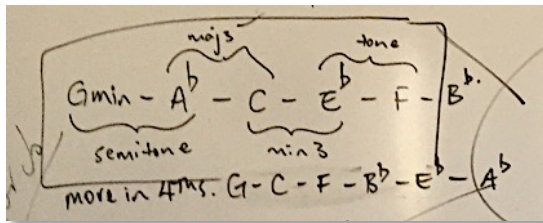 maj3 tone
Gmin - Ab - C - Eb - F - Bb.
semitone min 3
more in 4ths. G - C - F - Bb - Eb - Ab